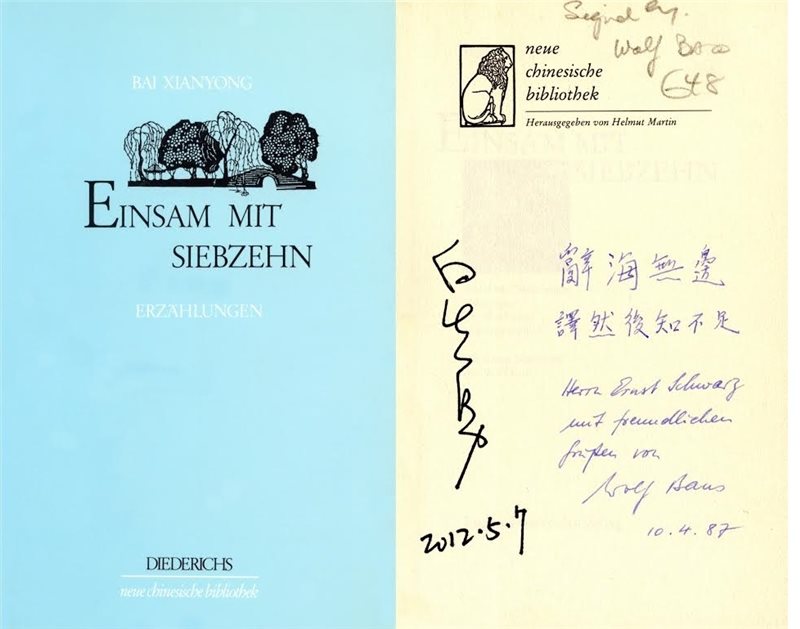 BAI XIANYONG
EINSAM MIT
SIEBZEHN
ERZÄHLUNGEN
DIEDERICHS
neue chinesische bibliothek
Signed by.
Wolf Baus
£48
neue
chinesische
bibliothek
Herausgegeben von Helmut Martin
辭海無邊
譯然後知不足
Herrn Ernst Schwarz
mit freundlichen
Grüßen von
Wolf Baus
10.4.87
白先勇
2012.5.7